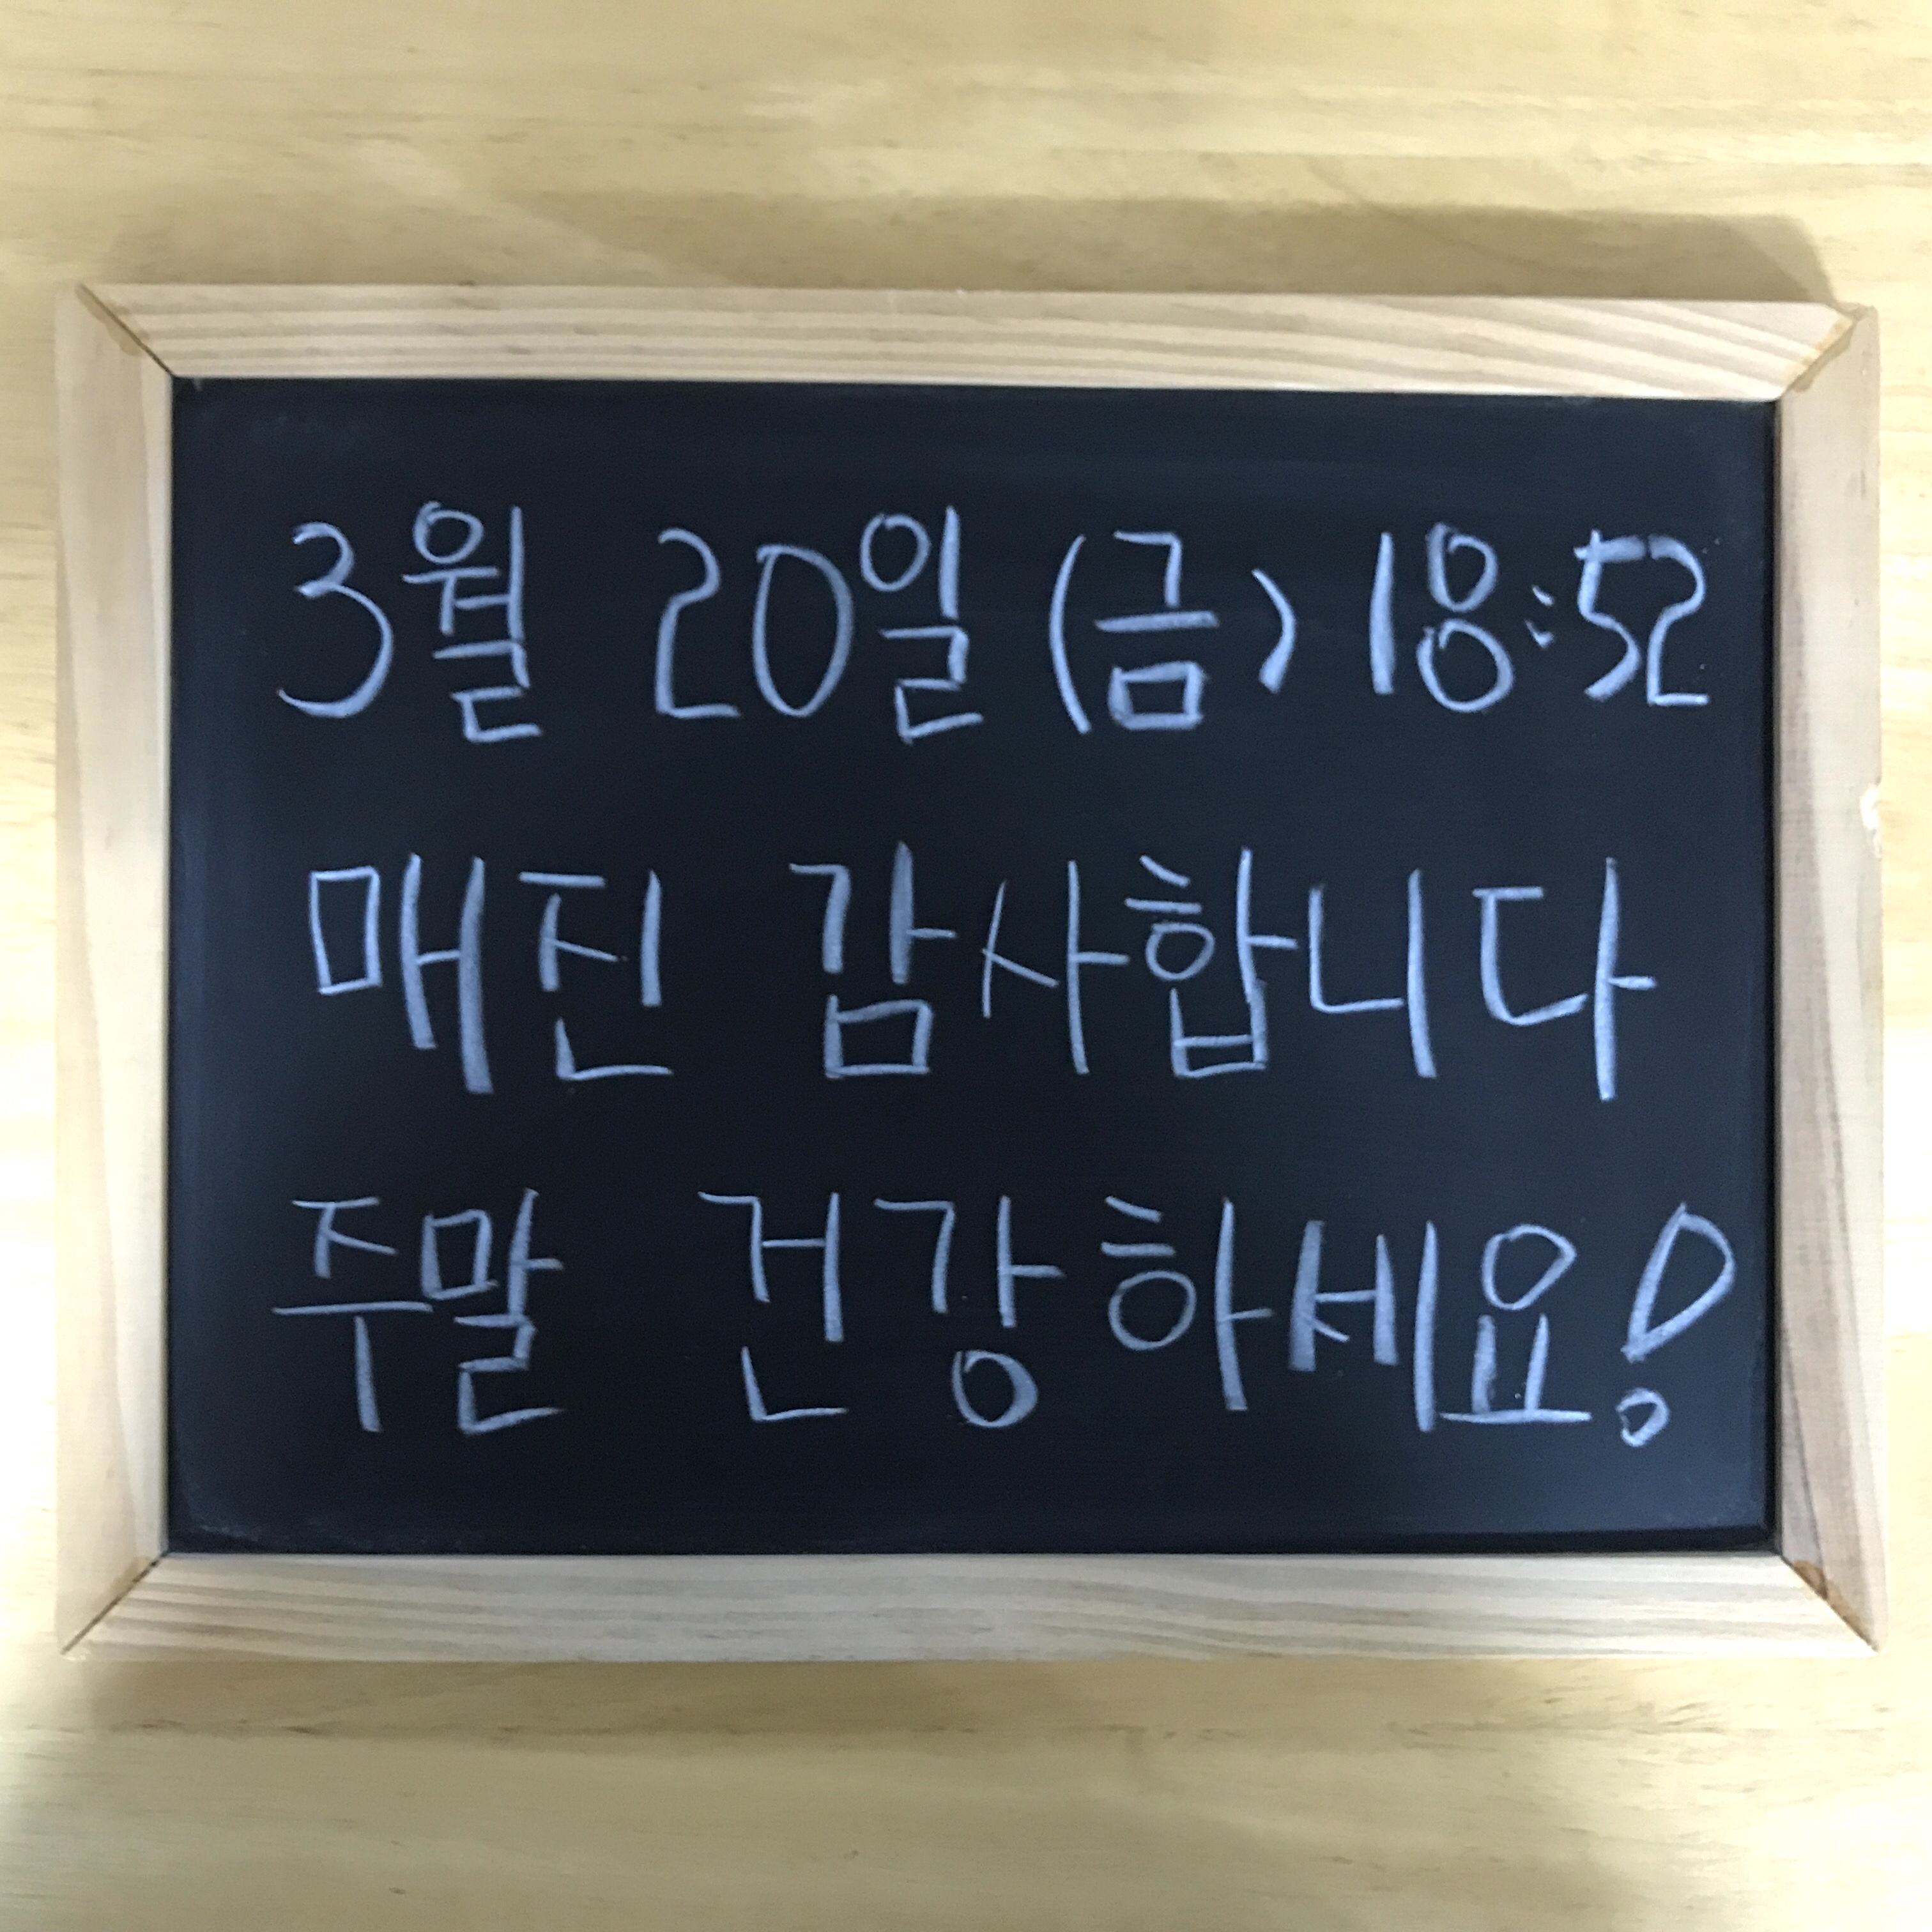 3월 20일 (금) 18:52
매진 감사합니다
주말 건강하세요!